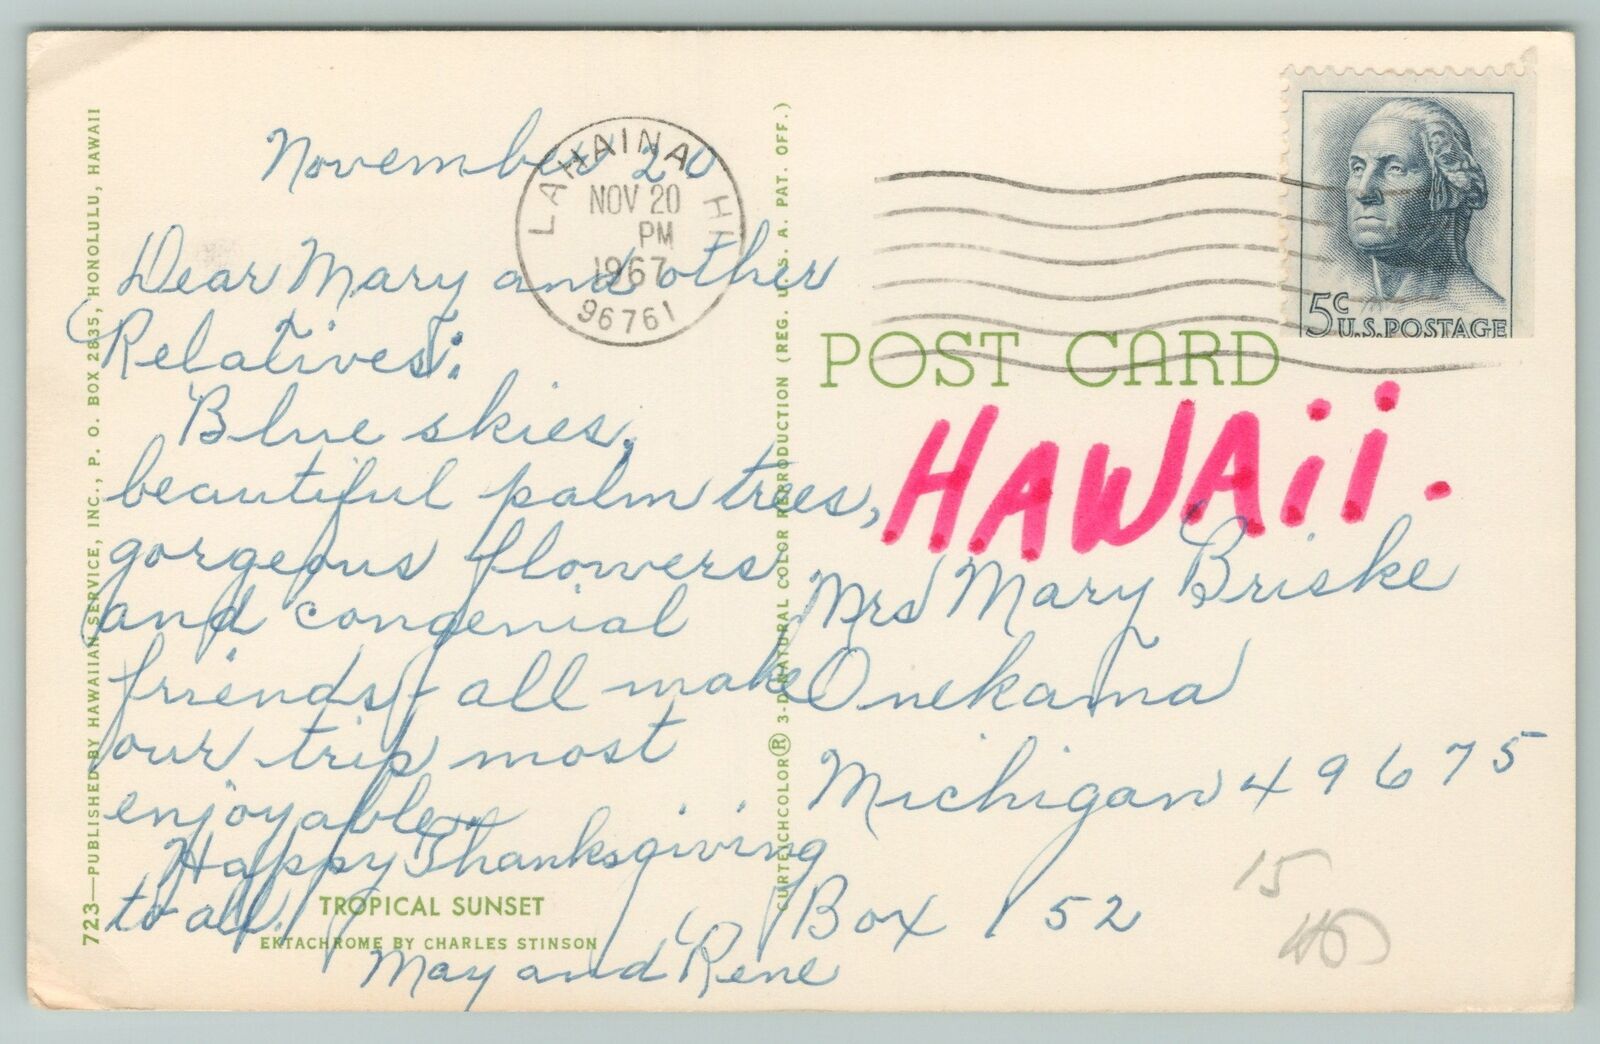 November 20
Dear Mary and other
Relatives:
Blue skies,
beautiful palm trees,
gorgeous flowers
and congenial
friends - all make
our trip most
enjoyable.
Happy Thanksgiving
to all.
May and Rene
TROPICAL SUNSET
EKTACHROME BY CHARLES STINSON
723—PUBLISHED BY HAWAIIAN SERVICE, INC., P. O. BOX 2835, HONOLULU, HAWAII
CURTEICHCOLOR® 3-D NATURAL COLOR REPRODUCTION (REG. U. S. A. PAT. OFF.)
LAHAINA HI
NOV 20
PM
1967
96761
5c
U.S. POSTAGE
POST CARD
HAWAii.
Mrs Mary Briske
Onekama
Michigan 49675
Box 152
15